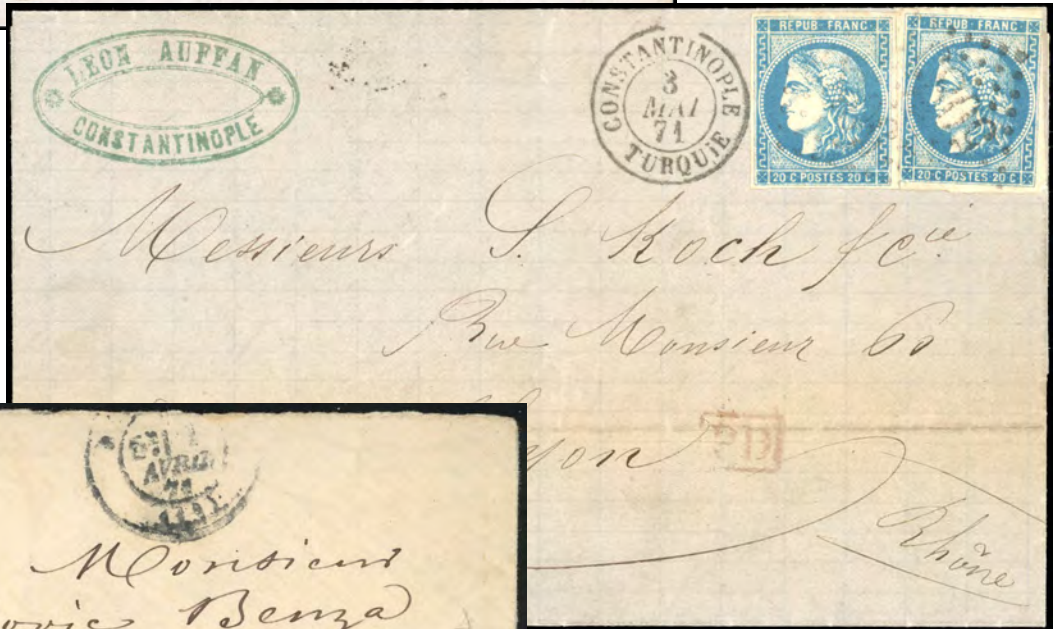 LEON AUFFAN
CONSTANTINOPLE
CONSTANTINOPLE
3
MAI
71
TURQUIE
REPUB·FRANC·
20 C POSTES 20 C
REPUB·FRANC·
20 C POSTES 20 C
Messieurs S. Koch & cie
Rue Monsieur 60
yon
PD
Rhône
AVRIL
71
Monsieur
Benza